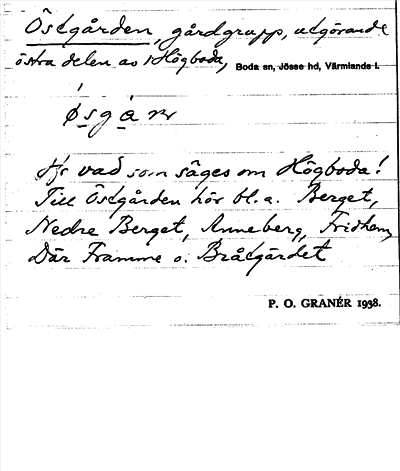 Östgården, gårdgrupp, utgörande
östra delen av Högboda, Boda sn, Jösse hd, Värmlands l.
ǿsgȧnr
Jfr vad som säges om Högboda!
Till Östgården hör bl.a. Berget,
Nedre Berget, Anneberg, Fridhem,
Där Framme o. Bråtgärdet
P. O. GRANÉR 1938.